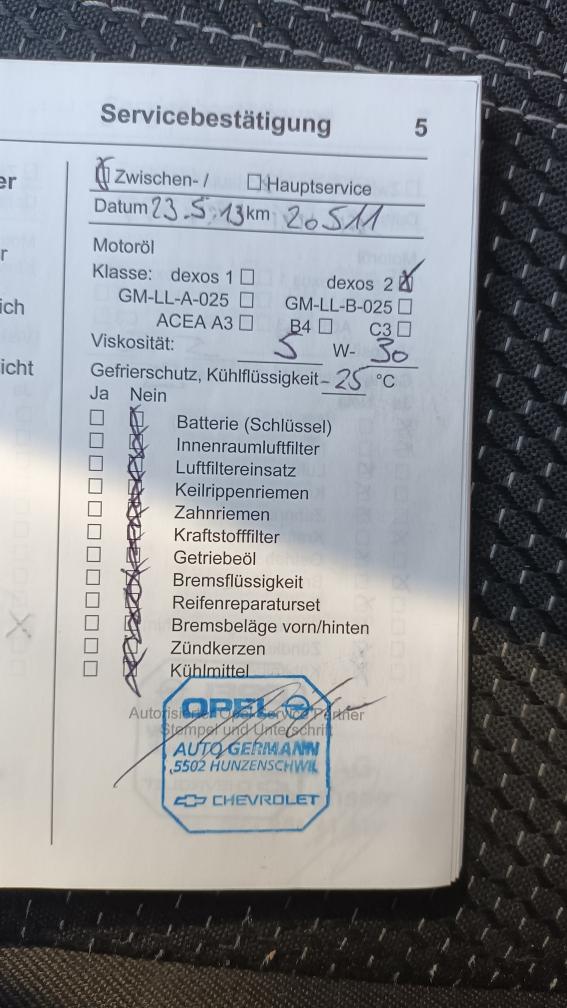 Servicebestätigung 5
er
r
ich
icht
Zwischen- / Hauptservice
Datum 23.5.13 km 20511
Motoröl
Klasse: dexos 1 dexos 2
GM-LL-A-025 GM-LL-B-025
ACEA A3 B4 C3
Viskosität: 5 W- 30
Gefrierschutz, Kühlflüssigkeit -25 °C
Ja Nein
Batterie (Schlüssel)
Innenraumluftfilter
Luftfiltereinsatz
Keilrippenriemen
Zahnriemen
Kraftstofffilter
Getriebeöl
Bremsflüssigkeit
Reifenreparaturset
Bremsbeläge vorn/hinten
Zündkerzen
Kühlmittel
OPEL
Autorisierter Opel Service Partner
Stempel und Unterschrift
AUTO GERMANN
5502 HUNZENSCHWIL
CHEVROLET